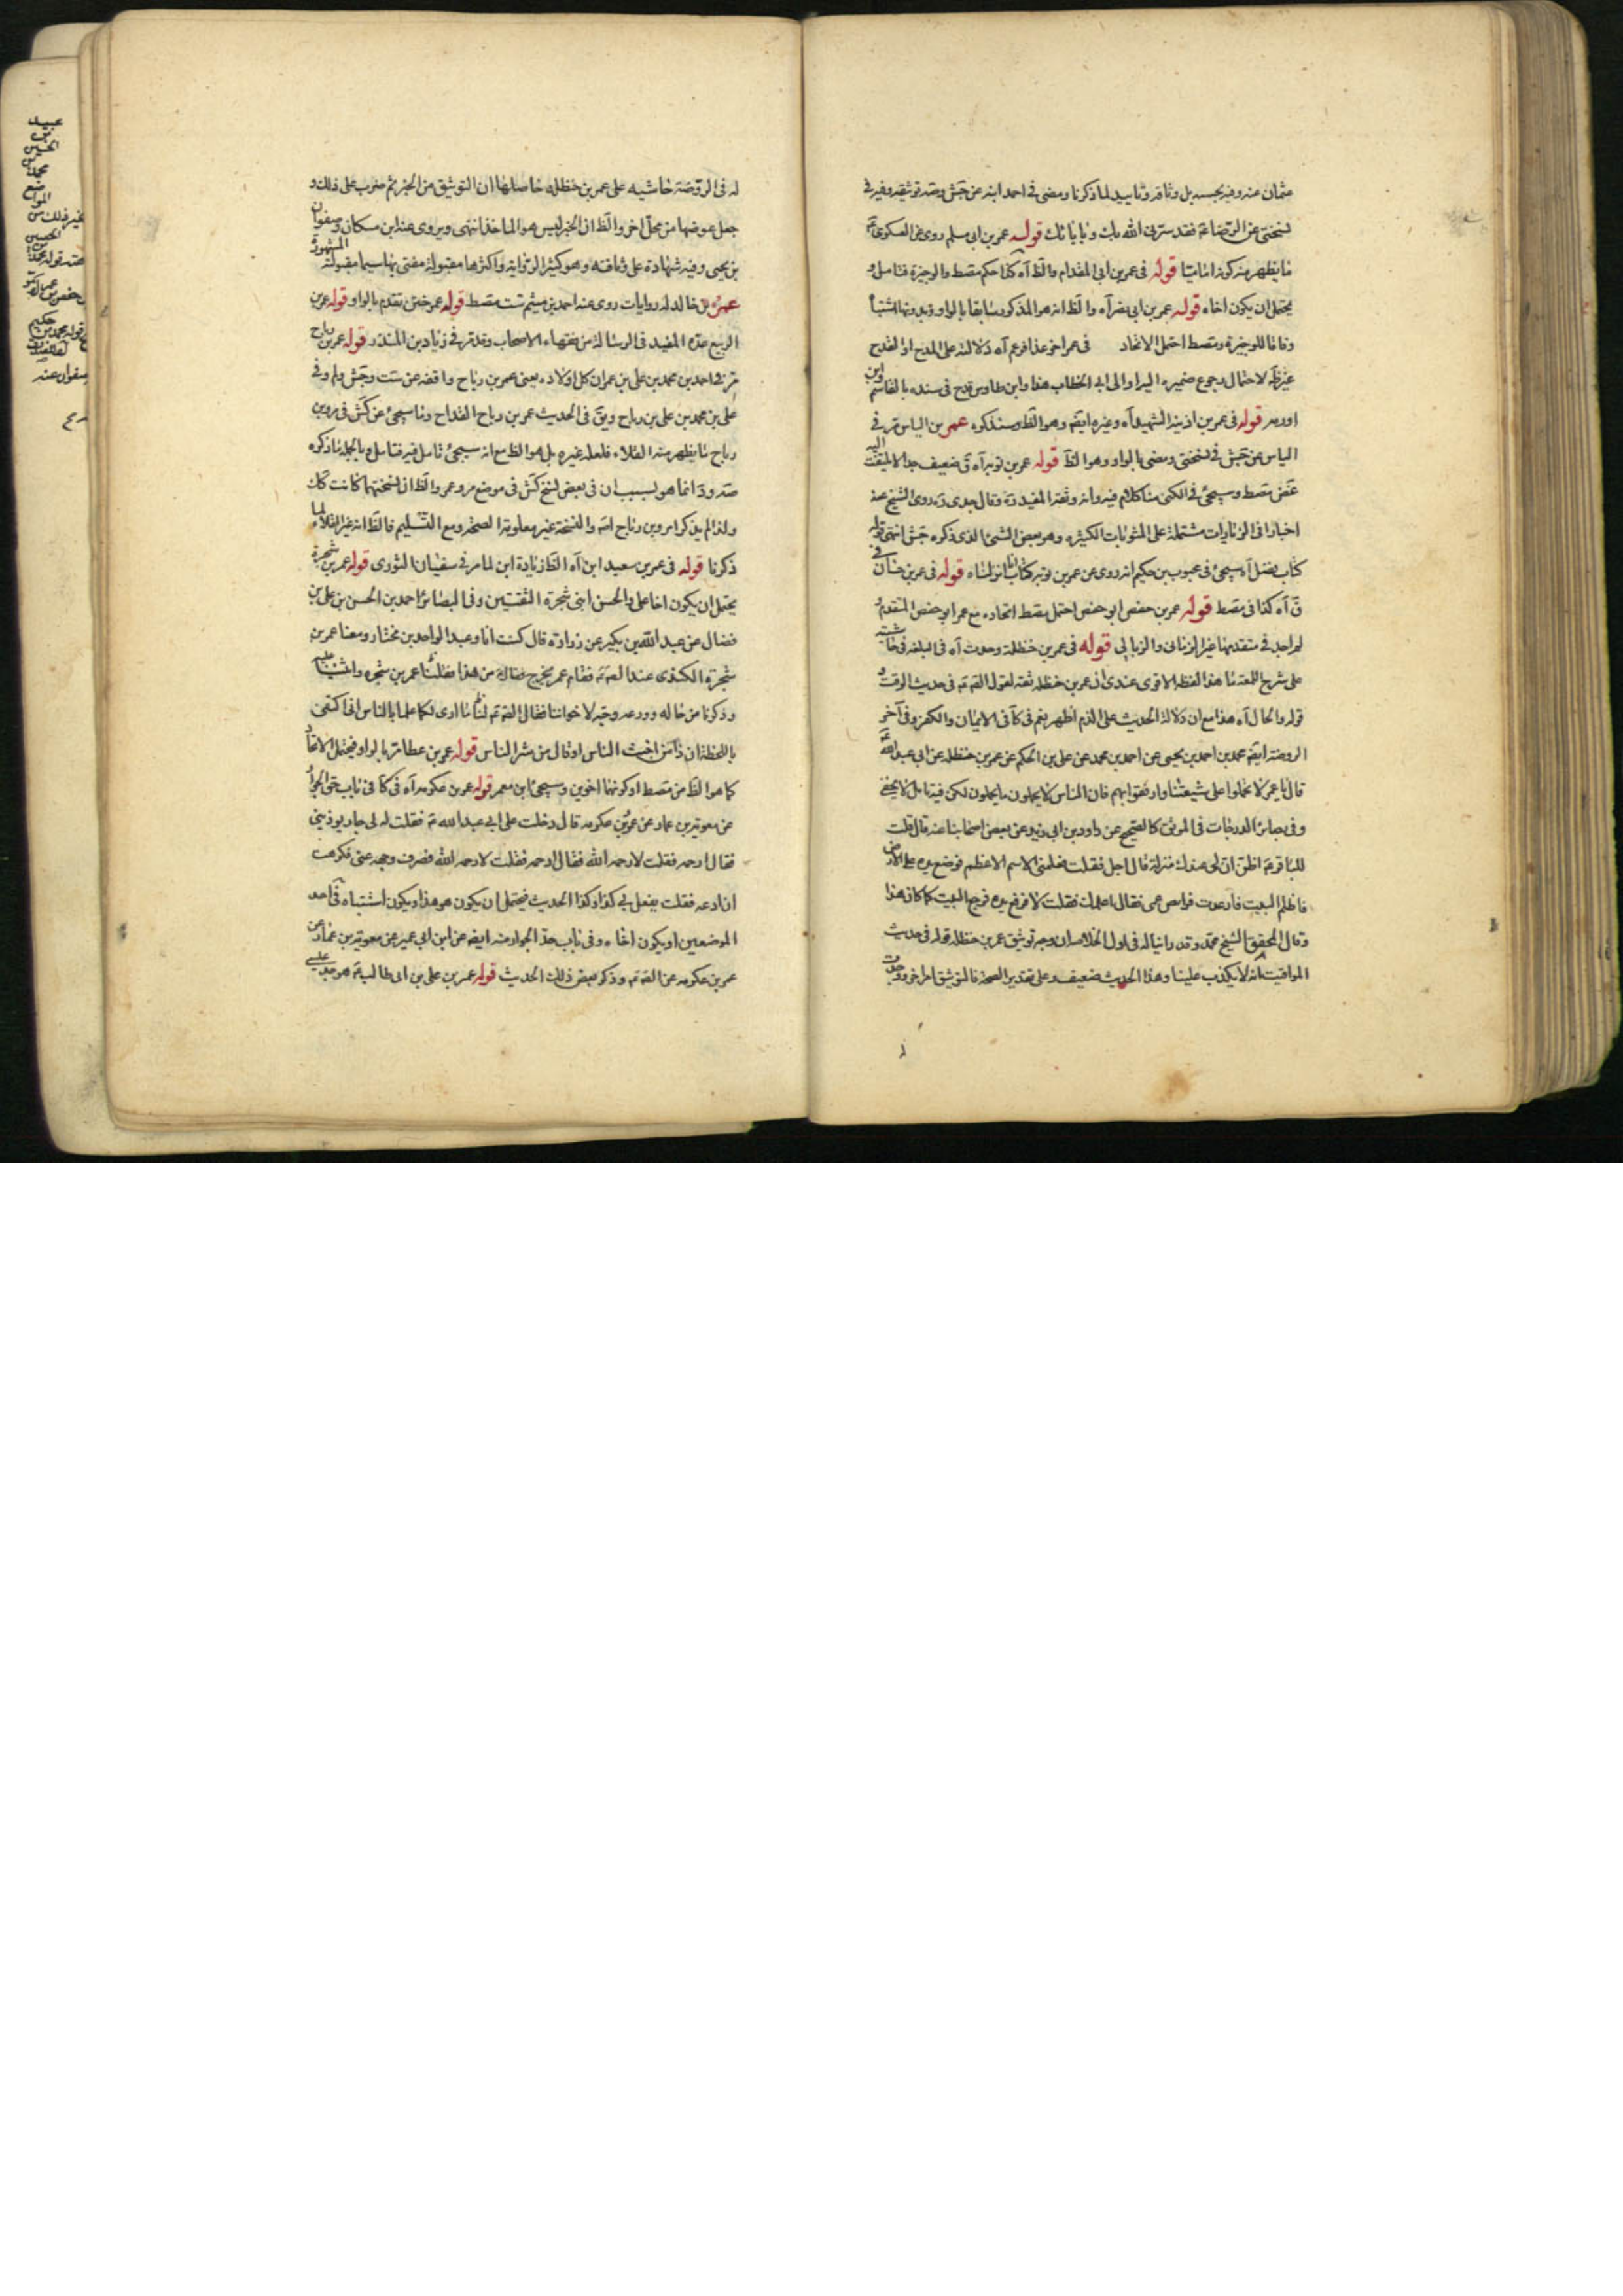 عثمان عنه وفيه بحسبه بل وثاقه وتاييد لما ذكرنا ومضى في احمد ابنه عن جش وصه توثيقه وفيه في
نسختي عن الرضا ع فقد ستر في الله قوله عمر بن ابي مسلم روى عن العسكري ع
ما يظهر منه كونه اماميا قوله في عمر بن ابي المقدام والظ آه كذا حكم مصط والوجيزة فتامل
يحتمل ان يكون اخاه قوله عمر بن ابي نصر آه والظ انه هو المذكور سابقا بالواو وبدونها اشتباه
وفاقا للوجيزة ومصط احتمل الاتحاد في عمر اخو عذافر عم آه دلالته على المدح او القدح
غير ظ لاحتمال رجوع ضميره اليه او الى ابي الخطاب هذا وابن طاوس قدح في سنده بالقاسم وابن
اورمه قوله في عمر بن اذينه الشهيد آه وغيره ايضم وهو الظ وسنذكره عمر بن الياس مر في
الياس عن جش في نسختي ومضى بالواو وهو الظ قوله عمر بن توبه آه ق ضعيف جدا لا يلتفت اليه
غض مصط وسيجئ في الكنى منا كلام فيه وانه وثقه المفيد ره وقال جدي ره روى الشيخ عنه
اخبارا في الزيارات مشتملة على المثوبات الكثيره وهو بعض الشئ الذي ذكره جش انتهى قوله
كتاب فضل آه سيجئ في محبوب بن حكيم انه روى عن عمر بن توبه كتاب انا انزلناه قوله في عمر بن حسان في
ق آه كذا في مصط قوله عمر بن حفص ابو حفص احتمل مصط اتحاده مع عمر ابو حفص المتقدم و
لم اجد في متقدمها غير الزماني والزبالي قوله في عمر بن حنظلة وحدث آه في البلغة في حاشيته
على شرح اللمعه ما هذا لفظه الاقوى عندي ان عمر بن حنظله ثقه لقول الصم ع في حديث الوقت و
قوله والحال آه هذا مع ان دلالة الحديث على الذم اظهر نعم في كا في الايمان والكفر وفي آخر
الروضه ايضم محمد بن احمد بن يحيى عن احمد بن محمد عن علي بن الحكم عن عمر بن حنظله عن ابي عبد الله ع
قال يا عمر لا تحملوا على شيعتنا وارفقوا بهم فان الناس لا يحملون ما يحملون لكن فيه تامل لا يخفى
وفي بصائر الدرجات في الموثق كالصحيح عن داود بن ابي يزيد عن بعض اصحابنا عنه قال قلت
للباقر ع اظن ان لي عندك منزلة قال اجل فقلت فعلمني الاسم الاعظم فوضع يده على الارض
فاظلم البيت فارعدت فرايص عمر فقال اعلمك فقلت لا فرفع يده فرجع البيت كما كان هذا
وقال المحقق الشيخ محمد وقد راينا له في اول الخلاصه ان وجه توثيق عمر بن حنظله قوله في حديث
المواقيت انه لا يكذب علينا وهذا الحديث ضعيف وعلى تقدير الصحه فالتوثيق امر اخر ووجدت
له في الروضة حاشيه على عمر بن حنظله حاصلها ان التوثيق من الخبر ثم ضرب على ذلك و
جعل عوضها من محل اخر والظ ان الخبر ليس هو الماخذ انتهى ويروي عنه ابن مسكان وصفوان
بن يحيى وفيه شهادة على وثاقته وهو كثير الرواية واكثرها مقبولة مفتى بها سيما مقبولته المشهورة
عمر بن خالد له روايات روى عنه احمد بن ميثم ست مصط قوله عمر ختن تقدم بالواو قوله عمر بن
الربيع عده المفيد في الرسالة من فقهاء الاصحاب وقد مر في زياد بن المنذر قوله عمر بن رباح
مر في احمد بن محمد بن علي بن عمر ان كل اولاده يعني عمر بن رباح واقفه عن ست وجش ولم وفي
علي بن محمد بن علي بن رباح ويق في الحديث عمر بن رباح القداح وما سيجئ عن كش في مرو بن
رباح ما يظهر منه القلاء فلعله غيره بل هو الظ مع انه سيجئ تامل فيه فتامل وبالجملة ما ذكره
صه ود انما هو لسبب ان في بعض نسخ كش في موضع مرو عمر والظ ان نسختهما كانت كك
ولذا لم يذكرا مرو بن رباح اصه والنسخه غير معلومة الصحة ومع التسليم فالظ انه غير القلاء لما
ذكرنا قوله في عمر بن سعيد ابن آه الظ زيادة ابن لما مر في سفيان الثوري قوله عمر بن شجرة
يحتمل ان يكون اخا علي والحسن ابني شجرة الثقتين وفي البصائر احمد بن الحسن بن علي بن
فضال عن عبد الله بن بكير عن زرارة قال كنت انا وعبد الواحد بن مختار ومعنا عمر بن
شجرة الكندي عند الصم ع فقام عمر يخرج فقال ع من هذا فقلنا عمر بن شجره واثنينا عليه
وذكرنا من حاله وورعه وحبه لاخواننا فقال الصم ع لنا ما ارى لكما علما بالناس اني اكتفي
باللحظة ان ذا من اخبث الناس او قال من شر الناس قوله عمر بن عطا مر بالواو فيحتمل الاتحاد
كما هو الظ من مصط او كونهما اخوين وسيجئ ابن معمر قوله عمر بن عكرمه آه في كا في باب حق الجوار
عن معوية بن عمار عن عمر بن عكرمه قال دخلت على ابي عبد الله ع فقلت له لي جار يوذيني
فقال ارحمه فقلت لا رحمه الله فقال ارحمه فقلت لا رحمه الله فصرف وجهه عني فكرهت
ان ادعه فقلت يفعل بي كذا وكذا الحديث فيحتمل ان يكون هو هذا ويكون اشتباه في احد
الموضعين او يكون اخاه وفي باب حد الجوار منه ايضم عن ابن ابي عمير عن معوية بن عمار عن
عمر بن عكرمه عن الصم ع وذكر بعض ذلك الحديث قوله عمر بن علي بن ابي طالب ع هو جد علي
عبيد
بن
الحسين
محمد
المواضع
غير ذلك من
الحسين